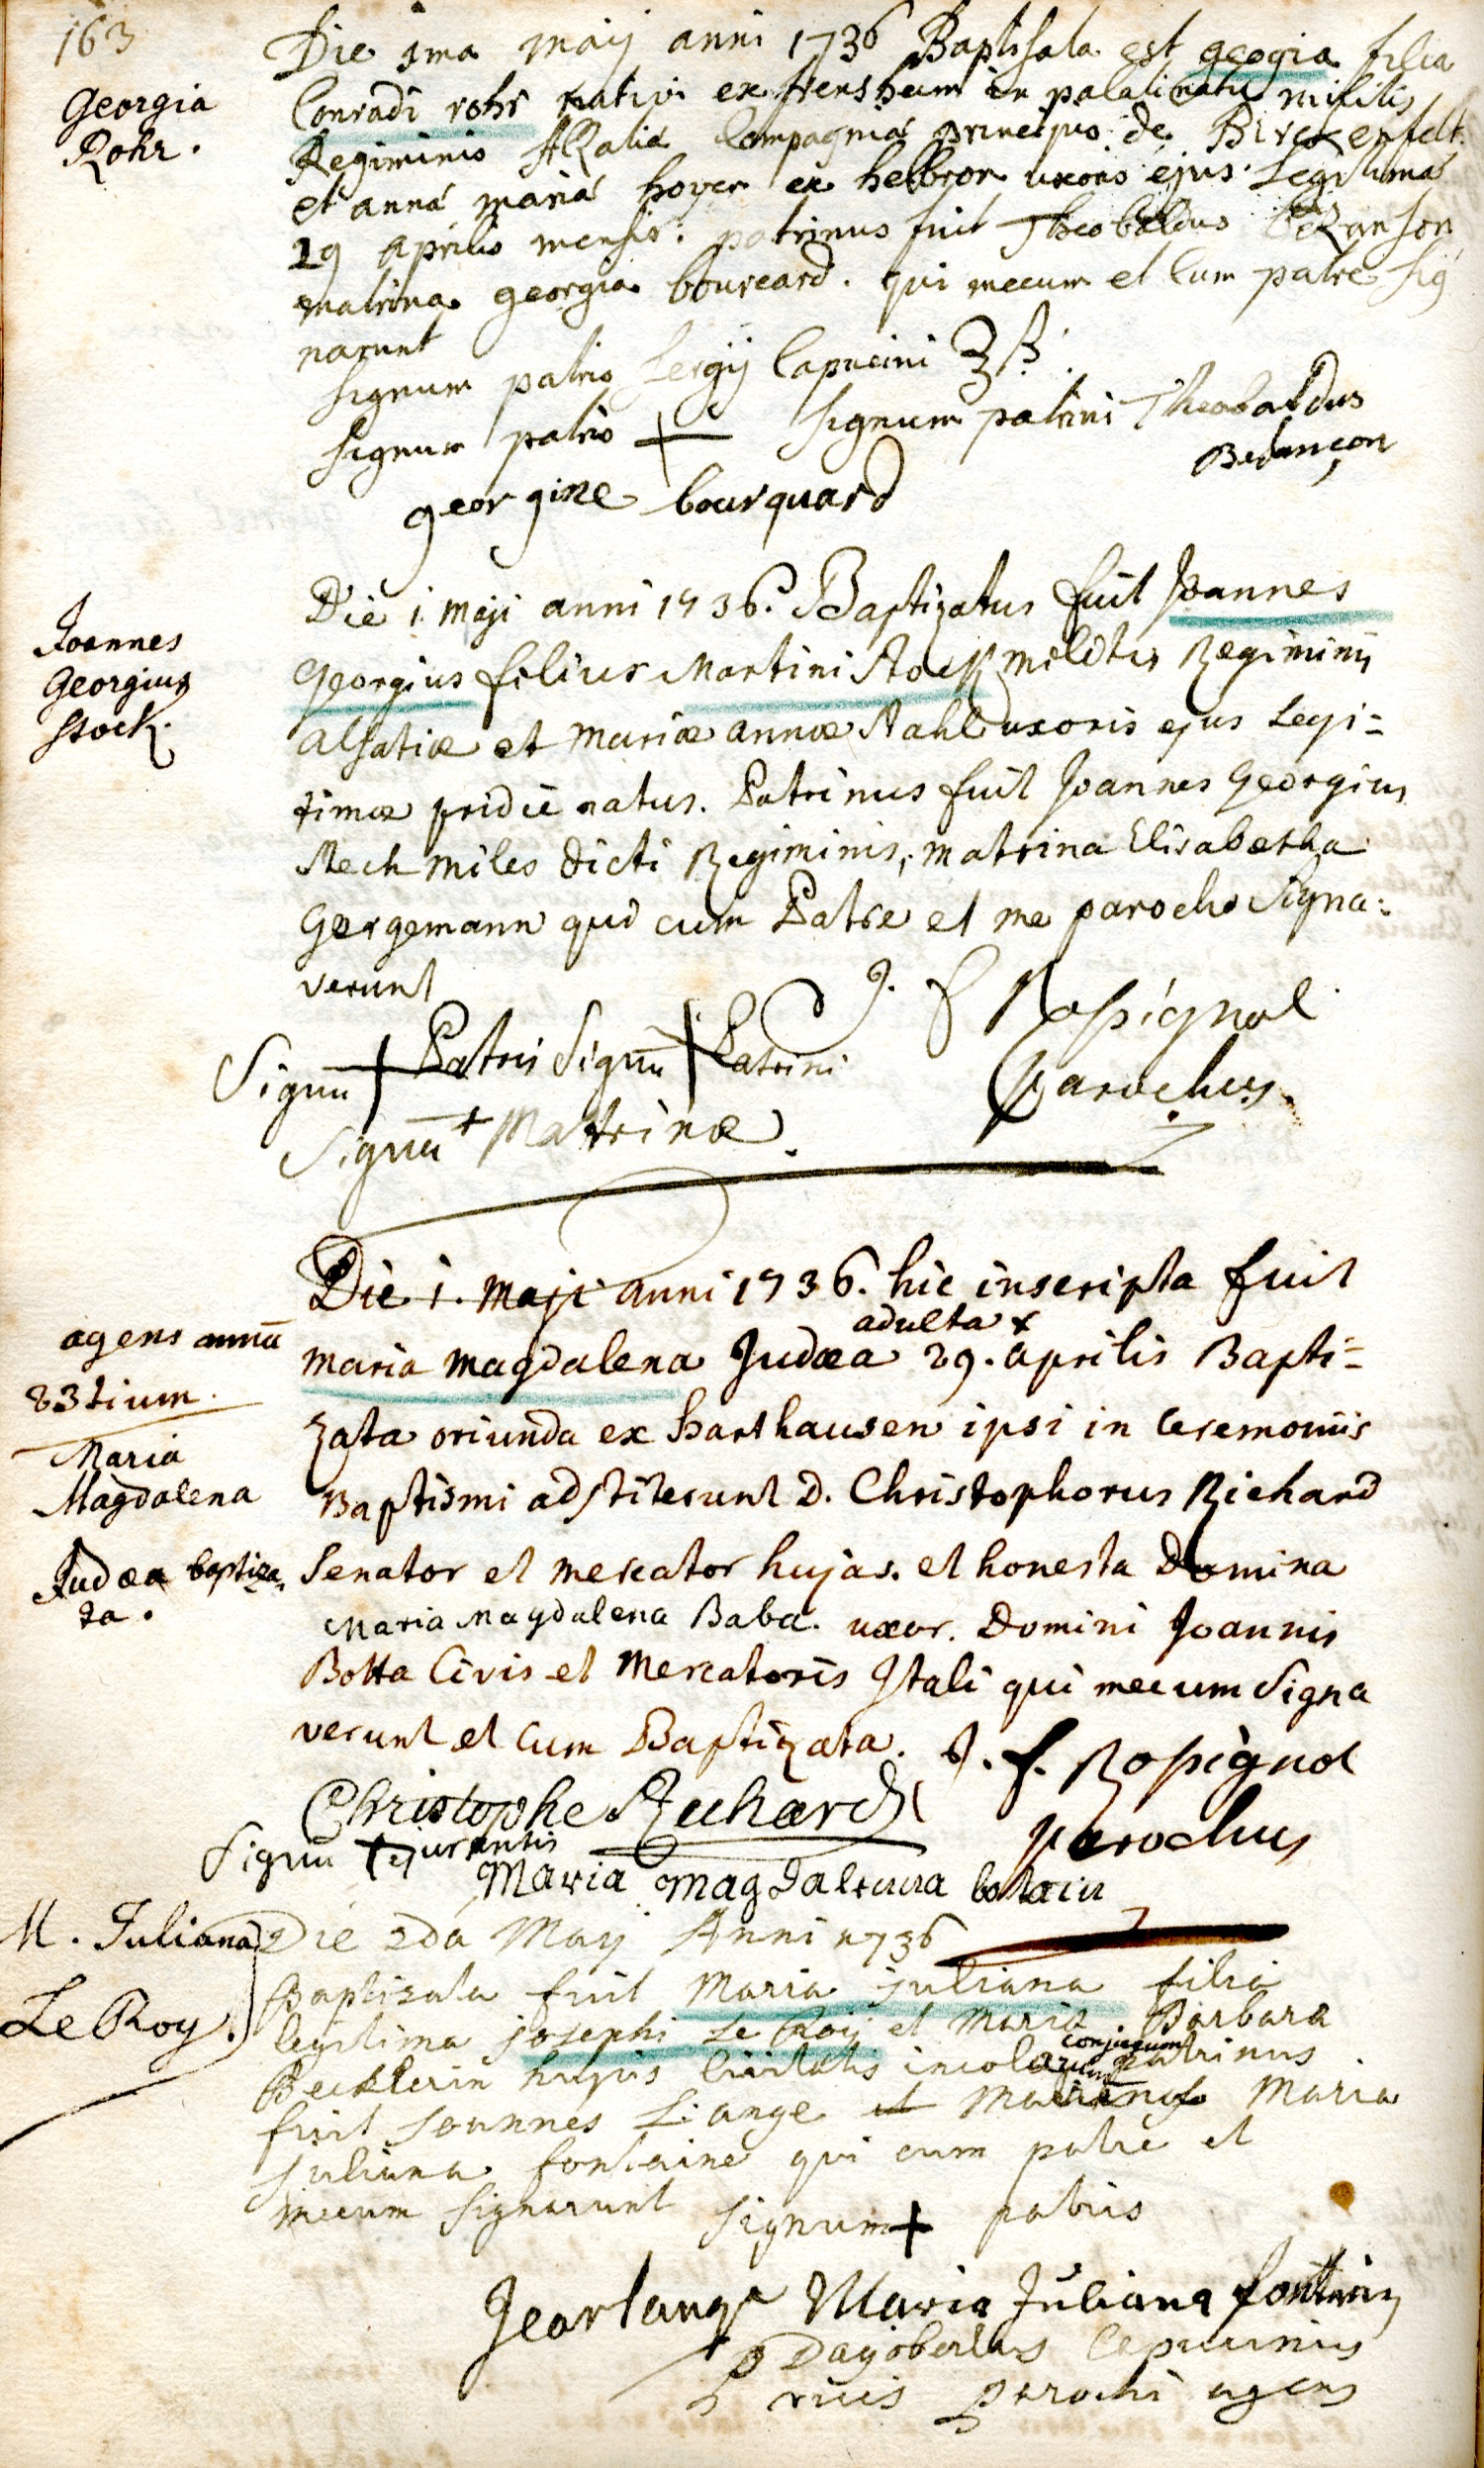 163
Georgia
Rohr.
Die 1ma maij anni 1736 Baptisata est geogia filia
Conradi rohr nativi ex frensheim in palatinatu militis
Regiminis Alzatiæ Compagniæ principis de Birckenfelt
et anná mariá hoyer ex helbron uxoris ejus Legitimá
29 aprilis mensis: patrinus fuit Theobaldus beZanson
matrina georgia bourcard. qui mecum et Cum patre sig
narunt
signum patris sergij Capucini
signum patris + signum patrini Theobaldus
Bedançon
georgine bourquard
Joannes
Georgius
Stock.
Die 1. maji anni 1736. Baptizatus fuit Joannes
Georgius filius Martini Stock militis Regiminis
alsatiæ et mariæ annæ Stahl uxoris ejus Legi=
timæ pridie natus. Patrinus fuit Joannes Georgius
Stech miles dicti Regiminis, matrina Elisabetha
Gergemann qui cum Patre et me parocho Signa=
verunt
J. f Rossignol
Parochus
Signū + Patris Signū + Patrini
Signū + Matrinæ.
agens annū
23tium.
Maria
Magdalena
Judæa baptiza
ta.
Die 1. maji anni 1736. hic inscripta fuit
adulta
maria magdalena Judæa 29. aprilis Bapti=
zata oriunda ex harthausen ipsi in Ceremoniis
Baptismi adstiterunt D. Christophorus Richard
Senator et mercator hujas. et honesta Domina
Maria Magdalena Baba. uxor. Domini Joannis
Botta Civis et Mercatoris Itali qui mecum Signa
verunt et Cum Baptizata. J. f. Rossignol
parochus
Christophe Richard
Signū +
Maria magdalena
M. Juliana
Le Roy.
Die 2da Maij Anni 1736
Baptizata fuit Maria juliana filia
legitima josephi Le Roij et Maria Barbara
conjugum
Becklerin hujus Civitatis incolarum Patrinus
fuit Joannes L'ange et Matrina Maria
Juliana fontaine qui cum patre et
mecum signarunt signum + patris
Jean lange Maria Juliana
P Dagobertus Capucinus
vices Parochi agens